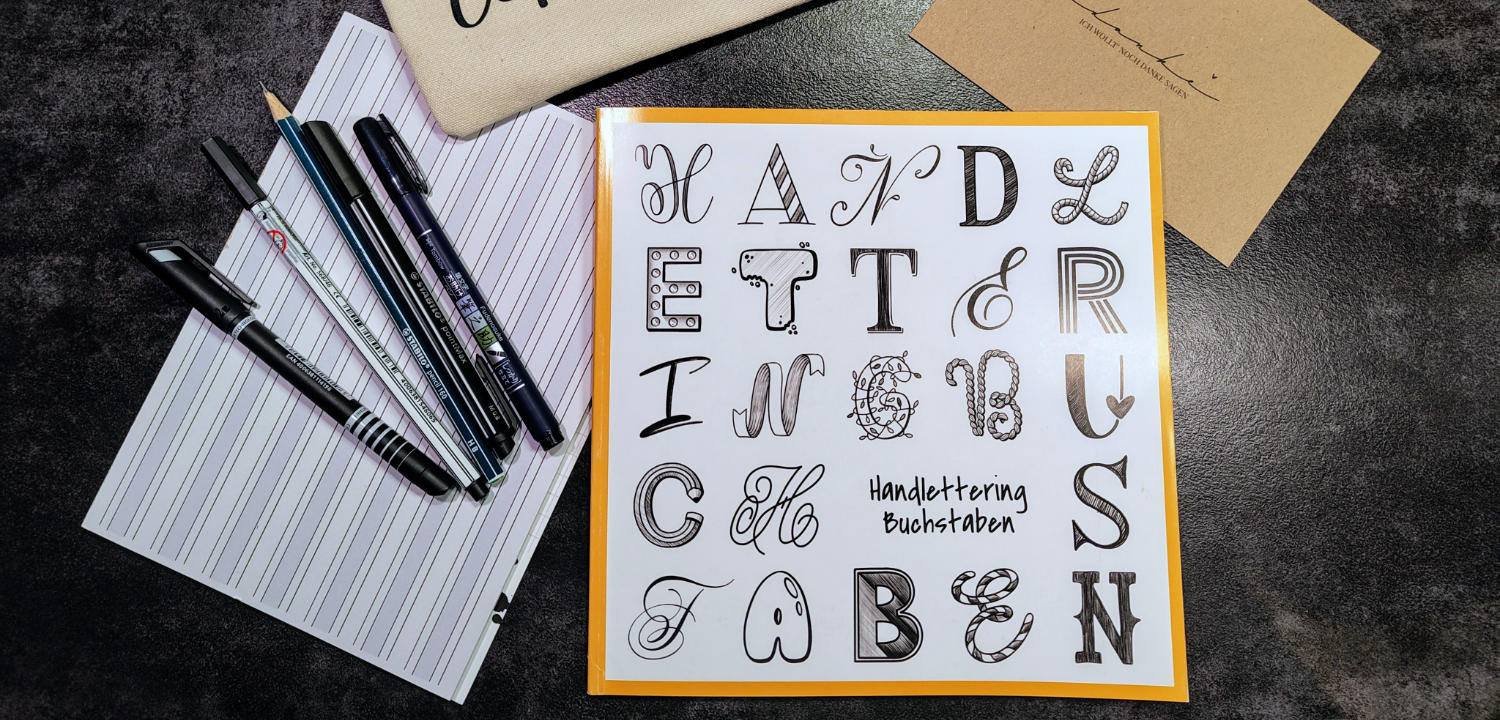 danke
ICH WOLLT' NOCH DANKE SAGEN
H A N D L
E T T E R
I N G B U
C H
Handlettering
Buchstaben
S
T A B E N
STABILO pointMax
STABILO pencil 160
HB